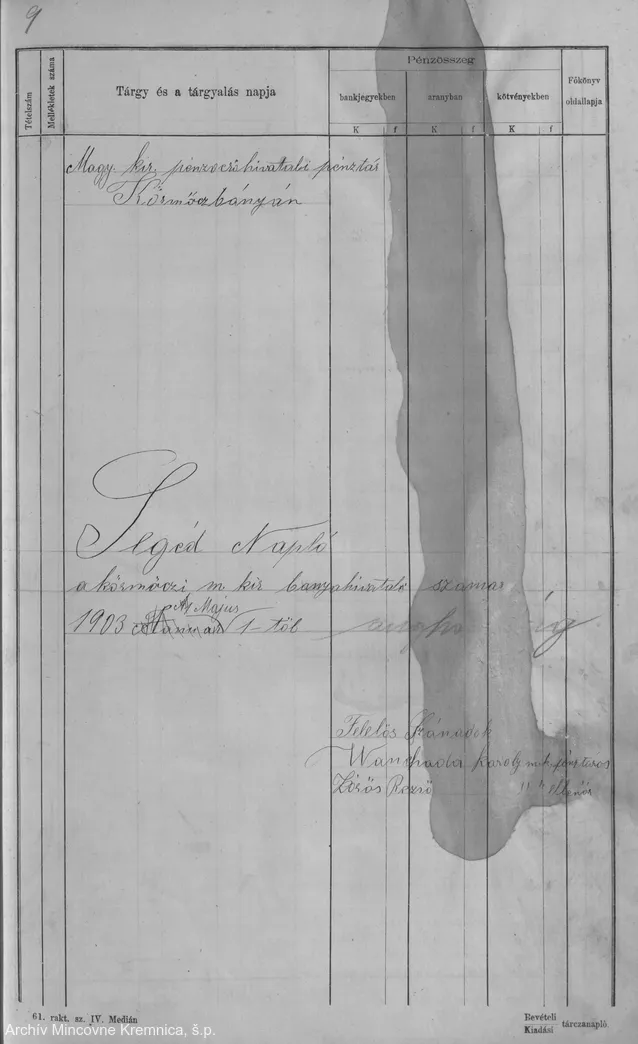 9
Tételszám
Mellékletek száma
Tárgy és a tárgyalás napja
Pénzösszeg
bankjegyekben
aranyban
kötvényekben
Főkönyv
oldallapja
K f K f K f
Magy. kir. pénzverőhivatali pénztár
Körmöczbányán
Segéd Napló
a körmöczi m. kir bányahivatal számas
Május
1903 1-től
Felelős
Wanchada Karoly m. k. pénztáros
Rezső ellenőr
61. rakt. sz. IV. Medián
Bevételi
Kiadási tárczanapló.
Archív Mincovne Kremnica, š.p.